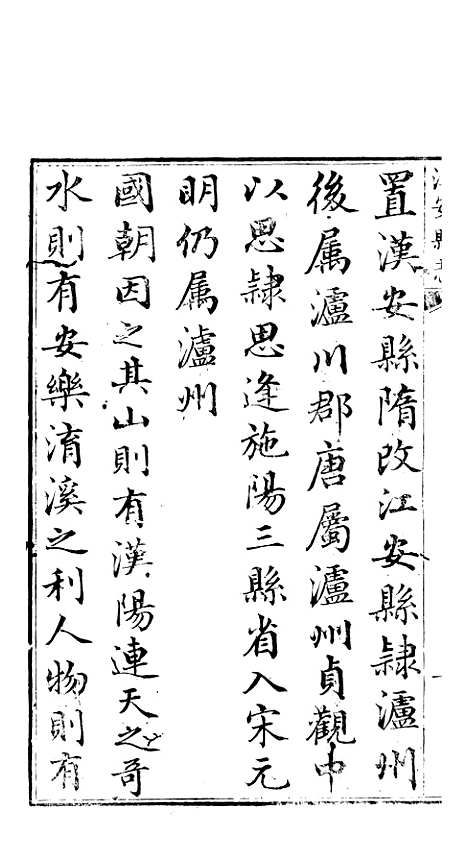 江安縣志
置漢安縣隋改江安縣隷瀘州
後属瀘川郡唐屬瀘州貞觀中
以思隷思逢施陽三縣省入宋元
明仍属瀘州
國朝因之其山則有漢陽連天之奇
水則有安樂淯溪之利人物則有